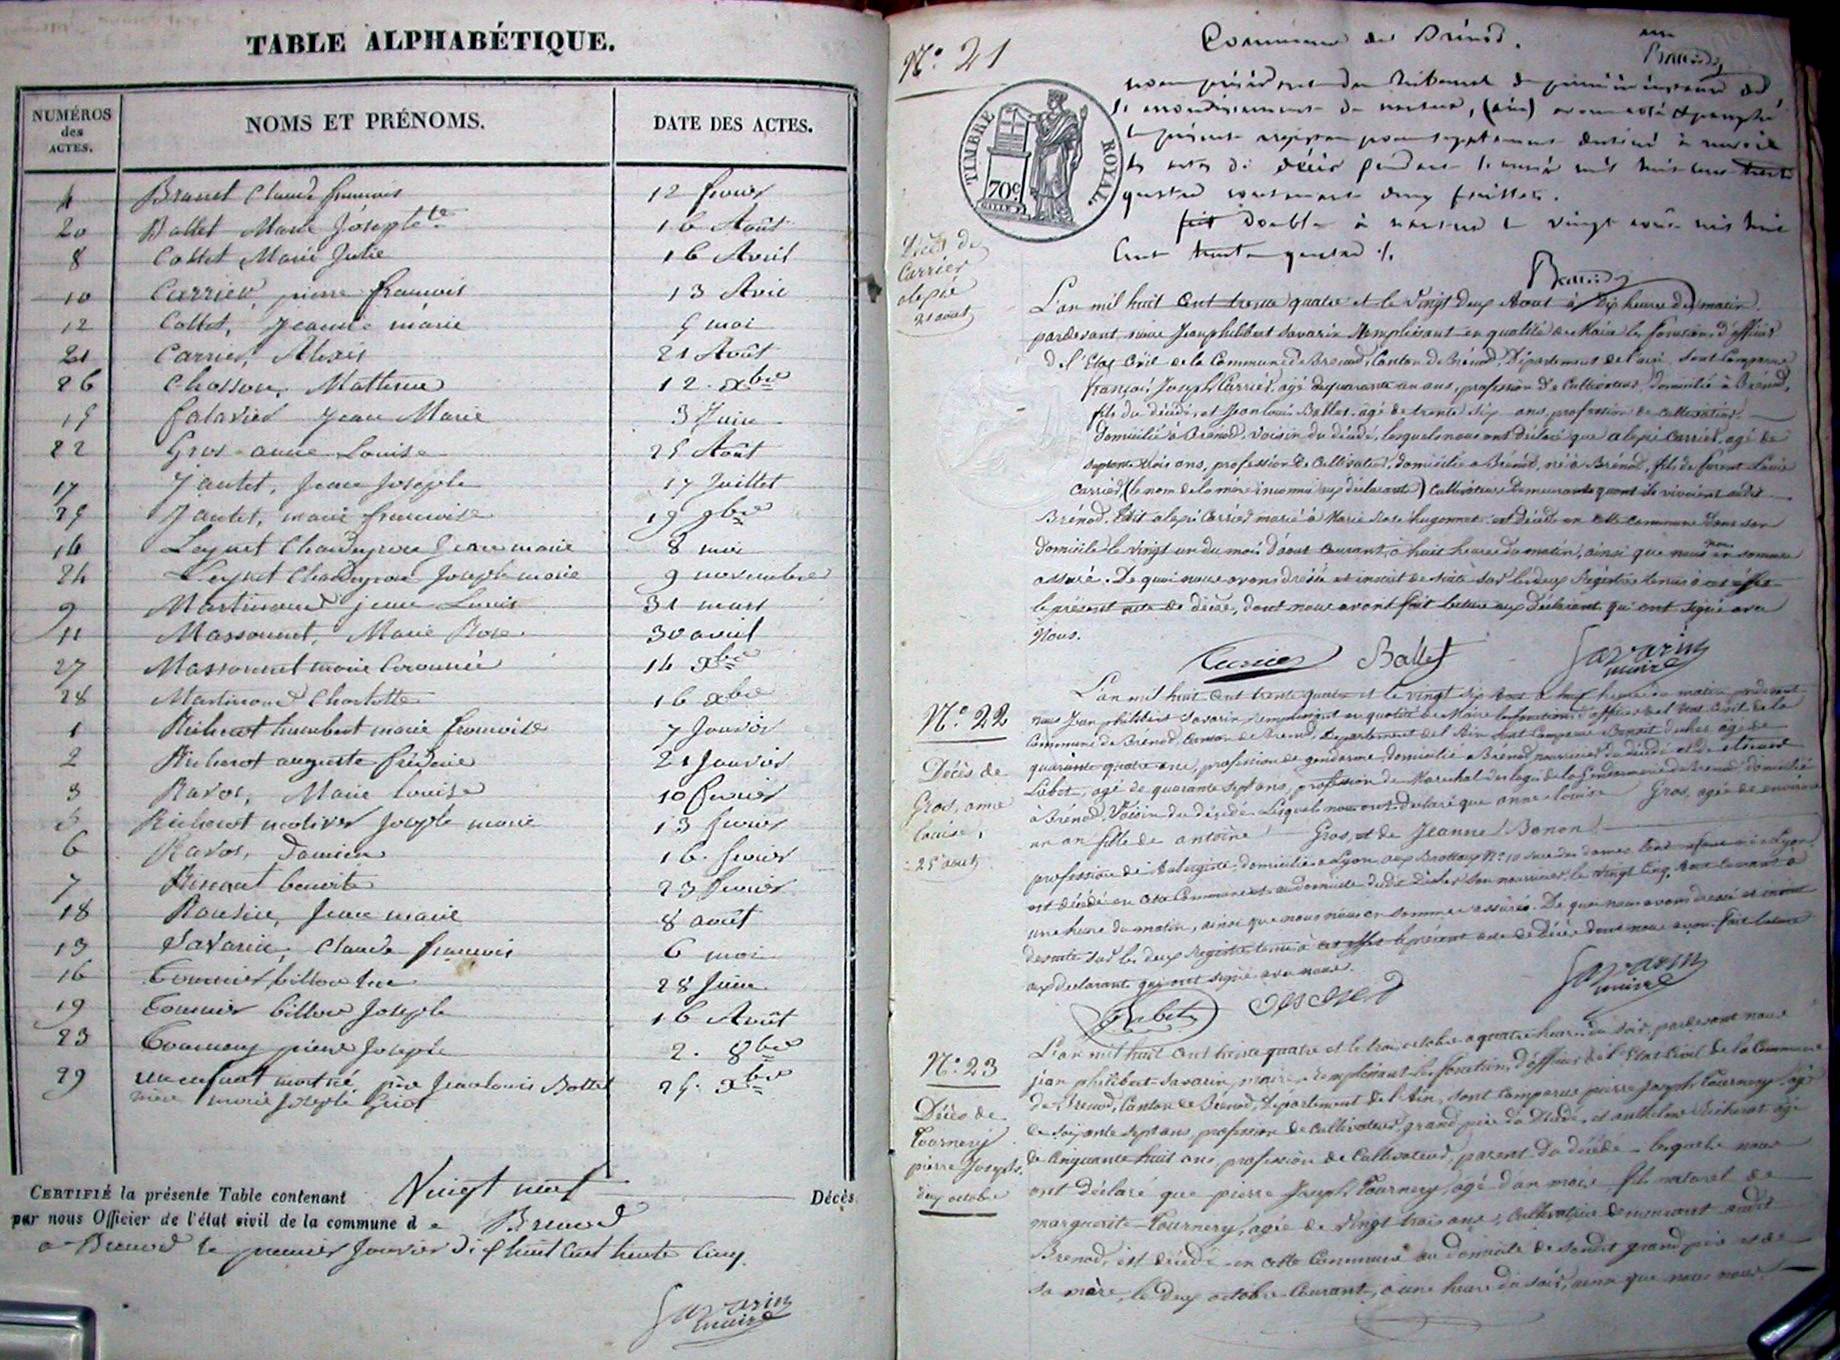 TABLE ALPHABÉTIQUE.
NUMÉROS des ACTES. NOMS ET PRÉNOMS. DATE DES ACTES.
4 Brunet Claude françois 12 fevrier
20 Ballet Marie Josephte 16 Août
8 Collet Marie Julie 16 Avril
10 Carrier, pierre françois 13 Avril
12 Collet, Jeanne marie 5 mai
21 Carrier, Alexis 21 Août
26 Chosson, Mathieu 12 xbre
15 Jean Marie 3 Juin
22 Gros anne Louise 25 Août
17 Jantet, Jean Joseph 17 Juillet
25 Jantet, marie francoise 19 9bre
14 Jean marie 8 mai
24 Joseph marie 9 novembre
9 Martinand jean Louis 31 mars
11 Massonnet, Marie Rose 30 avril
27 Massonnet marie 14 xbre
28 Martinand Charlotte 16 xbre
1 Richerot humbert marie francoise 7 Janvier
2 Richerot auguste fréderic 21 Janvier
3 Ravos, Marie Louise 10 fevrier
5 Richerot Joseph marie 13 fevrier
6 Ravos, Damien 16 fevrier
7 benoite 23 fevrier
18 Jean marie 8 août
13 Savarin, Claude françois 6 mai
16 Tournier billon 28 Juin
19 Tournier billon Joseph 16 Août
23 Tournery pierre Joseph 2 8bre
29 un enfant mort né, père Jean Louis Ballet 25 xbre
mère marie Josephe Griot
CERTIFIÉ la présente Table contenant Vingt neuf Décès
par nous Officier de l'état civil de la commune de Brenod
a Brenod le premier Janvier dix huit cent trente cinq.
Savarin
maire
N° 21
Commune de Brénod.
TIMBRE ROYAL.
70 c
les actes de décès pendant l'année mil huit cent trente
quatre contenant deux feuillets.
fait double à nantua le vingt août mil huit
cent trente quatre
Décès de
Carrier
alexis
21 aout
L'an mil huit cent trente quatre et le vingt deux Aout à dix heure du matin
pardevant nous Jean philibert Savarin Remplissant en qualité de Maire les fonctions d'officier
de l'Etat Civil de la Commune de Brenod, Canton de Brénod, Département de l'ain, sont Comparus
françois Joseph Carrier, agé de quarante un ans, profession de Cultivateur, domicilié à Brénod,
fils du décédé, et Jean Louis Ballet agé de trente six ans, profession de cultivateur
domicilié à Brénod, voisin du décédé, lesquels nous ont déclaré que alexis Carrier, agé de
septante trois ans, profession de Cultivateur, domicilié a Brénod, né à Brénod, fils de furent Louis
Carrier, (le nom de la mère inconnu aux déclarants) Cultivateurs demeurants quand ils vivaient audit
Brénod, Ledit alexis Carrier marié à Marie Rose hugonnet est décédé en cette commune dans son
domicile le vingt un du mois d'aout courant, à huit heure du matin, ainsi que nous nous en sommes
assuré. De quoi nous avons dressé et inscrit de suite sur les deux Registres tenus à cet effet
le présent acte de décès, dont nous avons fait lecture aux déclarants qui ont signé avec
Nous.
Carrier Ballet Savarin
maire
N° 22
Décès de
Gros, anne
Louise,
25 aout
L'an mil huit cent trente quatre et le vingt six Aout à huit heure du matin pardevant
nous Jean philibert Savarin Remplissant en qualité de Maire les fonctions d'officier de l'Etat Civil de la
Commune de Brénod, Canton de Brenod, Département de l'Ain sont Comparus Benoit agé de
quarante quatre ans, profession de gendarme, domicilié a Brénod, nourricier du décédé et de
agé de quarante sept ans, profession de Marechal des logis de la Gendarmerie de Brenod, domicilié
à Brénod, Voisin du décédé. Lesquels nous ont déclaré que anne Louise Gros, agée de environ
un an fille de antoine Gros, et de Jeanne Bonon
profession de Aubergiste, domiciliés a Lyon, aux Brotteaux N° 10
est décédé en cette Commune et au domicile dudit son nourricier, le vingt cinq Aout Courant a
une heure du matin, ainsi que nous nous en sommes assurés. De quoi nous avons dressé et inscrit
de suite sur les deux Registres tenus à cet effet le présent acte de Décès dont nous avons fait lecture
aux déclarants qui ont signé avec nous.
Savarin
maire
N° 23
Décès de
Tournery
pierre Joseph.
deux octobre
L'an mil huit cent trente quatre et le trois octobre a quatre heure du soir, pardevant nous
jean philibert Savarin, maire Remplissant les fonctions d'officier de l'Etat Civil de la Commune
de Brenod, Canton de Brénod, Département de l'Ain, sont Comparus pierre Joseph Tournery, agé
de soixante sept ans, profession de Cultivateur, grand père du Décédé, et anthelme Richerot agé
de Cinquante huit ans, profession de Cultivateur, parent du décédé lesquels nous
ont déclaré que pierre Joseph Tournery, agé d'un mois, fils naturel de
marguerite Tournery, agée de Vingt trois ans, Cultivatrice demeurant audit
Brenod, est décédé en cette Commune au domicile de sondit grand père et de
sa mère, le deux octobre Courant, à une heure du soir, ainsi que nous nous